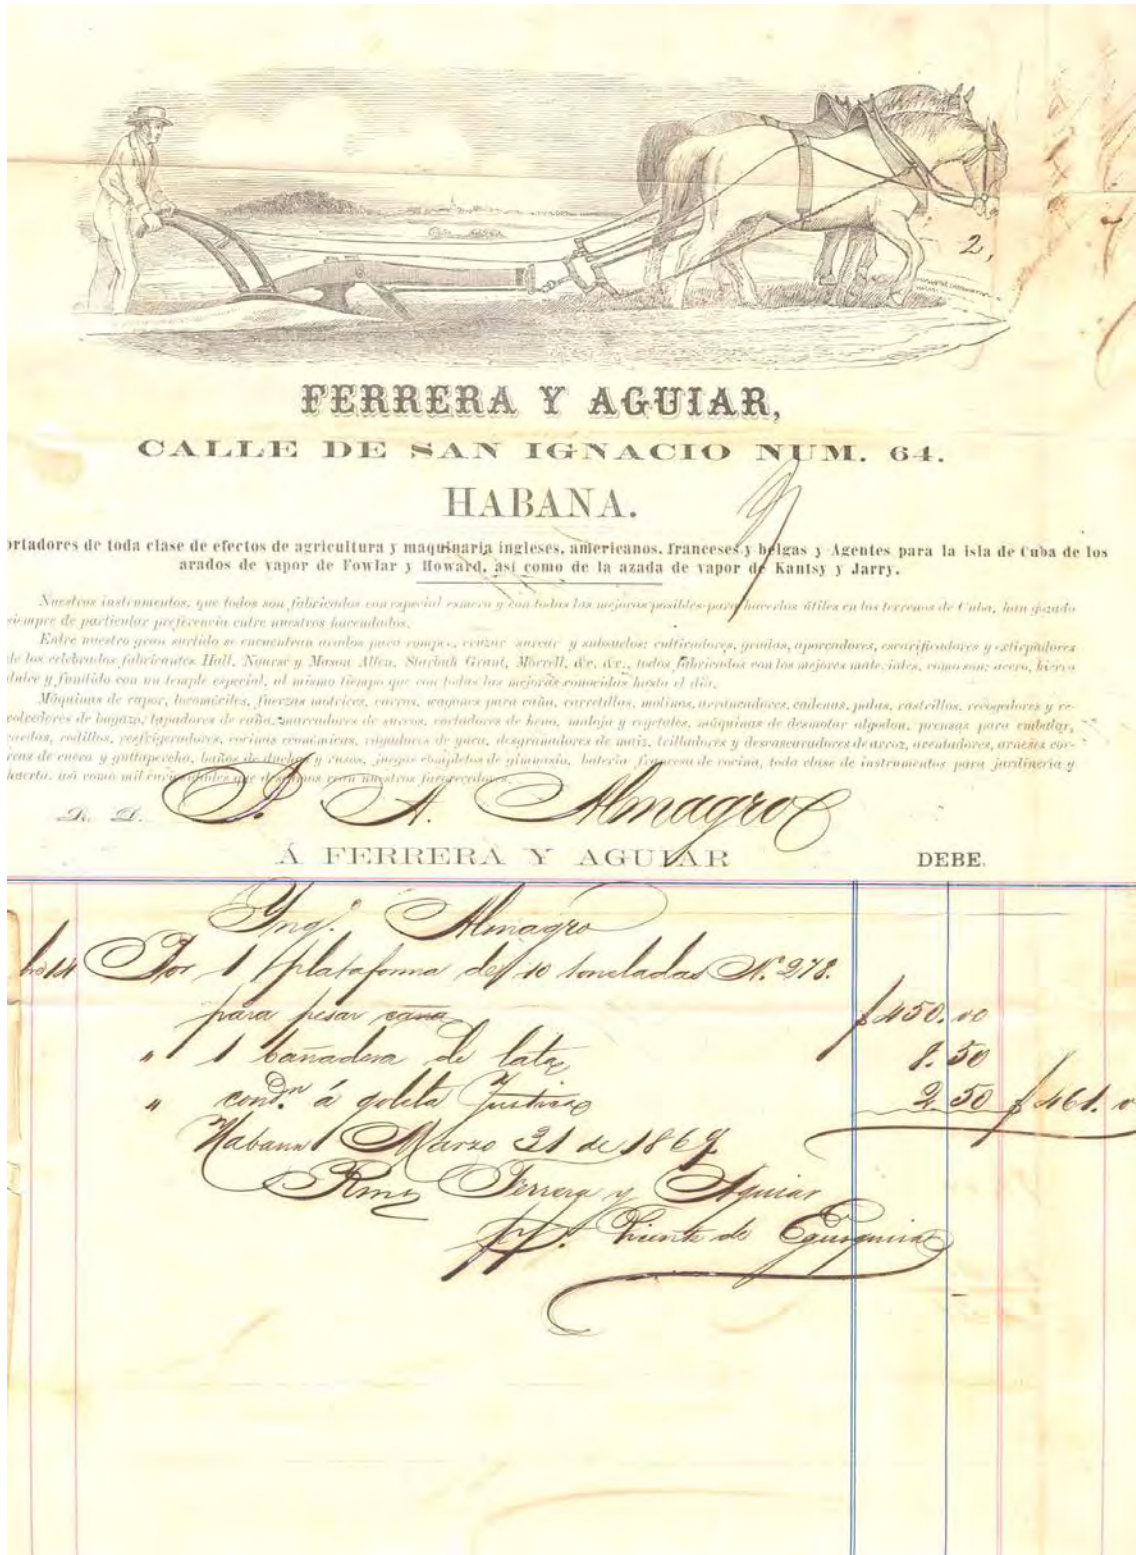 2,
FERRERA Y AGUIAR,
CALLE DE SAN IGNACIO NUM. 64.
HABANA.
ortadores de toda clase de efectos de agricultura y maquinaria ingleses, americanos, franceses y belgas y Agentes para la isla de Cuba de los
arados de vapor de Fowlar y Howard, así como de la azada de vapor de Kantsy y Jarry.
Nuestros instrumentos, que todos son fabricados con especial esmero y con todas las mejoras posibles para hacerlos útiles en los terrenos de Cuba, han gozado
siempre de particular preferencia entre nuestros hacendados.
Entre nuestro gran surtido se encuentran arados para romper, cruzar surcar y subsuelos; cultivadores, gradas, aporcadores, escarificadores y extirpadores
de los celebrados fabricantes Hall, Nourse y Mason Allen, Starbuh Grant, Morrell, &c. &c., todos fabricados con los mejores materiales, como son: acero, hierro
dulce y fundido con un temple especial, al mismo tiempo que con todas las mejoras conocidas hasta el dia.
Máquinas de vapor, locomóviles, fuerzas motrices, carros, wagones para caña, carretillas, molinos, arrancadores, cadenas, palas, rastrillos, recogedores y re-
volcedores de bagazo, tapadores de caña, marcadores de surcos, cortadores de heno, maloja y vegetales, máquinas de desmotar algodon, prensas para embalar,
cardas, rodillos, resfrigeradores, cocinas económicas, rayadores de yuca, desgranadores de maiz, trilladores y descascaradores de arroz, aventadores, arneses cor-
reas de cuero y guttapercha, baños de ducha y rusos, juegos completos de gimnasia, bateria francesa de cocina, toda clase de instrumentos para jardineria y
huerta, asi como mil curiosidades que deseamos vean nuestros favorecedores.
D. A. Almagro
Á FERRERA Y AGUIAR DEBE.
Yng.º Almagro
14 Por 1 plataforma de 10 toneladas N.º 278.
para pesar caña $450.00
" 1 bañadera de lata 8.50
" cond.n á goleta Justicia 2.50 $461.0
Habana Marzo 31 de 1867
Ferrera y Aguiar
pp. Vicente de